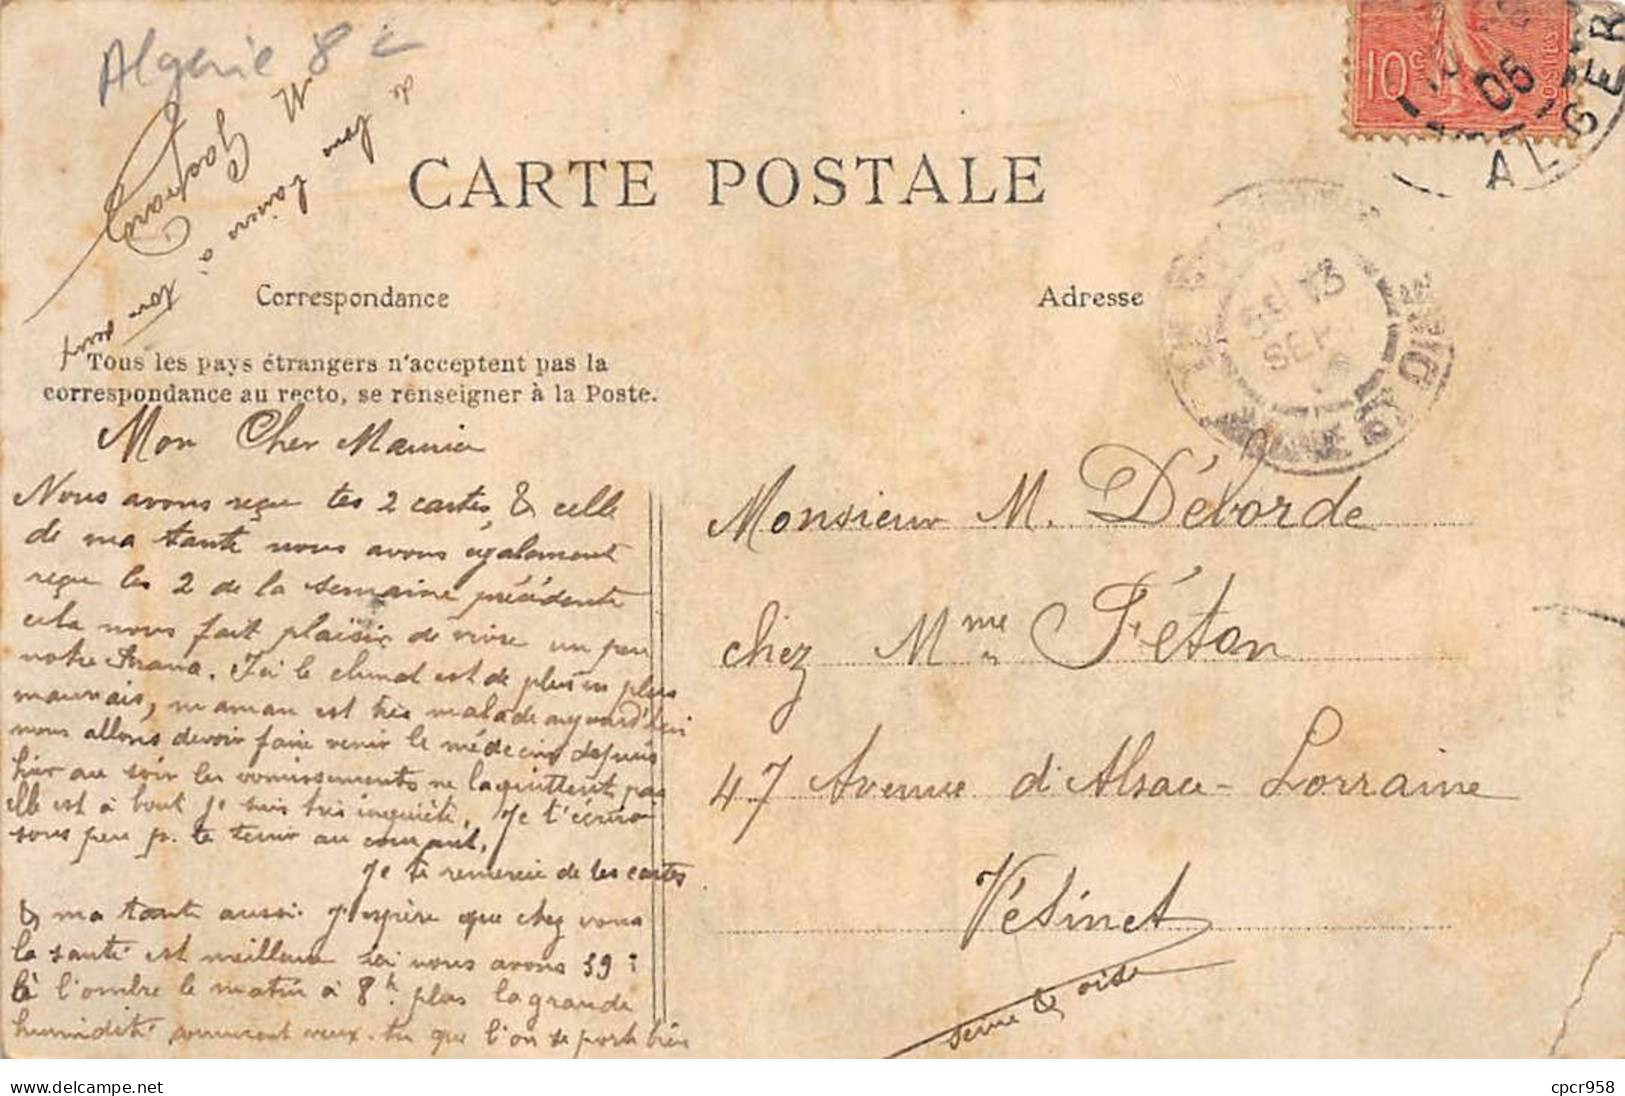 Algerie 8 €
CARTE POSTALE
10c
POSTES
05
ALGER
Correspondance
Adresse
13
SEPT
Tous les pays étrangers n'acceptent pas la
correspondance au recto, se renseigner à la Poste.
Mon Cher Maurice
Nous avons reçu tes 2 cartes, & celle
de ma tante nous avons également
reçu les 2 de la semaine précédente
cela nous fait plaisir de vivre un peu
notre . Ici le climat est de plus en plus
mauvais, maman est très malade aujourd'hui
nous allons devoir faire venir le médecin depuis
hier au soir les vomissements ne la quittent pas
elle est à bout je suis très inquiète. Je t'écrirai
sous peu p. te tenir au courant.
Je te remercie de tes cartes
& ma tante aussi. J'espère que chez vous
la santé est meilleure ici nous avons 39 :
à l'ombre le matin à 8h. plus la grande
humidité comment veux-tu que l'on se porte bien
de bons baisers à tous
Monsieur M. Déborde
chez Mme Féton
47 Avenue d'Alsace-Lorraine
Vésinet
Seine & oise
cpcr958